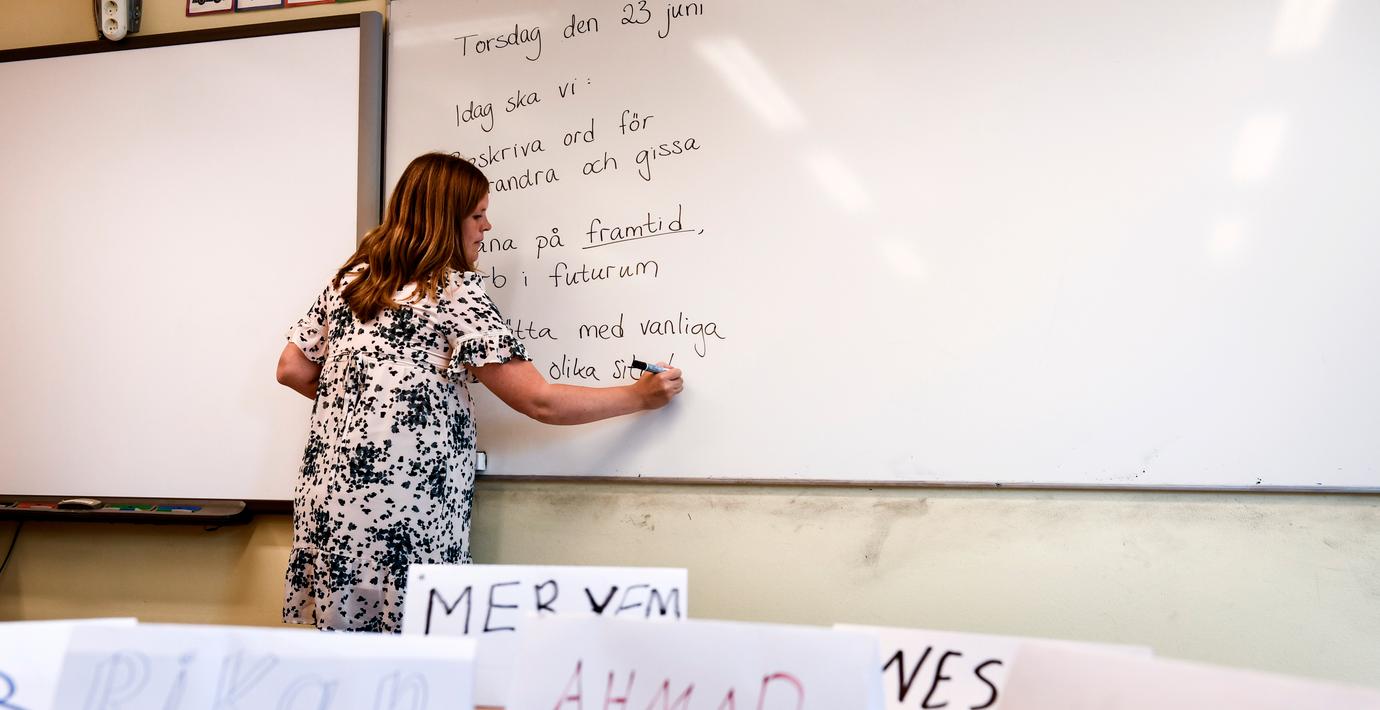 Torsdag den 23 juni
Idag ska vi:
Beskriva ord för
varandra och gissa
på framtid,
i futurum
med vanliga
olika
MERYEM
Rikan
AHMAD